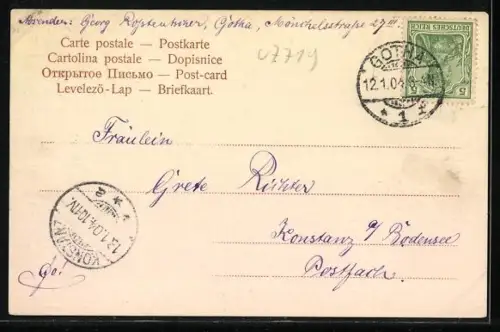 Absender: Georg Gotha, Mönchelsstraße 27 III.
Carte postale — Postkarte
Cartolina postale — Dopisnice
Открытое Письмо — Post-card
Levelező-Lap — Briefkaart.
UZ719
GOTHA
12.1.04
* 1
DEUTSCHES REICH
5 5
Fräulein
Grete Richter
Konstanz a/ Bodensee
Postfach
KONSTANZ
13.1.04